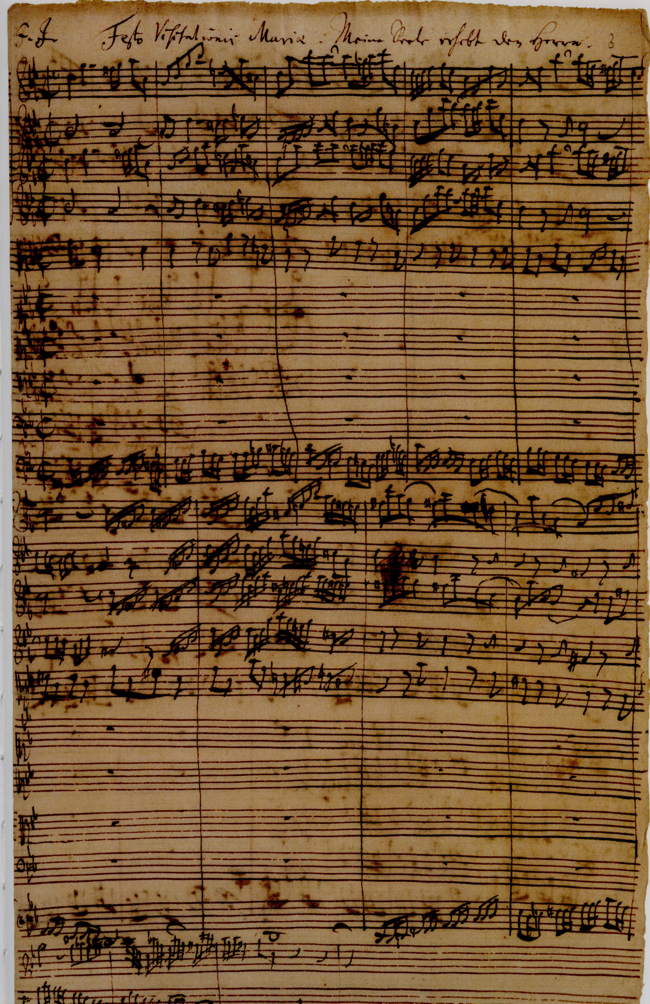 J. J. Festo Visitationis Mariæ. Meine Seele erhebt den Herrn. 3